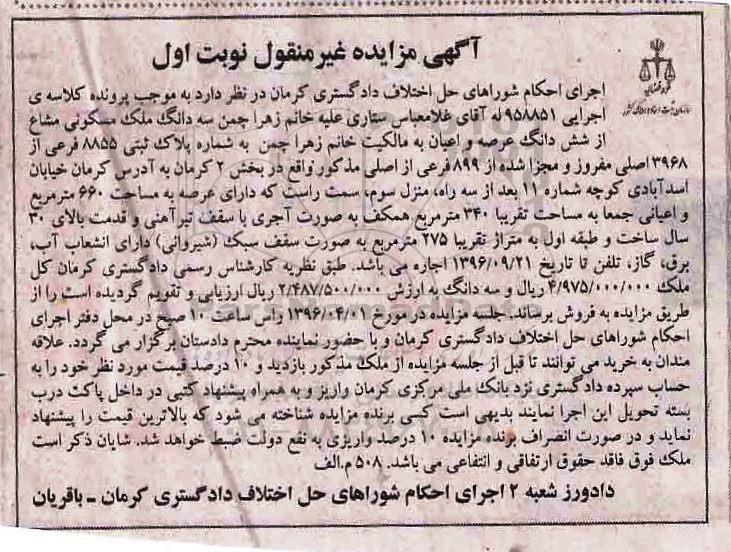 آگهی مزایده غیرمنقول نوبت اول
اجرای احکام شوراهای حل اختلاف دادگستری کرمان در نظر دارد به موجب پرونده کلاسه ی
اجرایی ۹۵۸۸۵۱ له آقای غلامعباس ستاری علیه خانم زهرا چمن سه دانگ ملک مسکونی مشاع
از شش دانگ عرصه و اعیان به مالکیت خانم زهرا چمن به شماره پلاک ثبتی ۸۸۵۵ فرعی از
۳۹۶۸ اصلی مفروز و مجزا شده از ۸۹۹ فرعی از اصلی مذکور واقع در بخش ۲ کرمان به آدرس کرمان خیابان
اسدآبادی کوچه شماره ۱۱ بعد از سه راه، منزل سوم، سمت راست که دارای عرصه به مساحت ۶۶۰ مترمربع
و اعیانی جمعا به مساحت تقریبا ۳۴۰ مترمربع همکف به صورت آجری با سقف تیرآهنی و قدمت بالای ۳۰
سال ساخت و طبقه اول به متراژ تقریبا ۲۷۵ مترمربع به صورت سقف سبک (شیروانی) دارای انشعاب آب،
برق، گاز، تلفن تا تاریخ ۱۳۹۶/۰۹/۲۱ اجاره می باشد. طبق نظریه کارشناس رسمی دادگستری کرمان کل
ملک ۴/۹۷۵/۰۰۰/۰۰۰ ریال و سه دانگ به ارزش ۲/۴۸۷/۵۰۰/۰۰۰ ریال ارزیابی و تقویم گردیده است را از
طریق مزایده به فروش برساند. جلسه مزایده در مورخ ۱۳۹۶/۰۴/۰۱ راس ساعت ۱۰ صبح در محل دفتر اجرای
احکام شوراهای حل اختلاف دادگستری کرمان و با حضور نماینده محترم دادستان برگزار می گردد. علاقه
مندان به خرید می توانند تا قبل از جلسه مزایده از ملک مذکور بازدید و ۱۰ درصد قیمت مورد نظر خود را به
حساب سپرده دادگستری نزد بانک ملی مرکزی کرمان واریز و به همراه پیشنهاد کتبی در داخل پاکت درب
بسته تحویل این اجرا نمایند بدیهی است کسی برنده مزایده شناخته می شود که بالاترین قیمت را پیشنهاد
نماید و در صورت انصراف برنده مزایده ۱۰ درصد واریزی به نفع دولت ضبط خواهد شد. شایان ذکر است
ملک فوق فاقد حقوق ارتفاقی و انتفاعی می باشد. ۵۰۸ م.الف
دادورز شعبه ۲ اجرای احکام شوراهای حل اختلاف دادگستری کرمان ـ باقریان